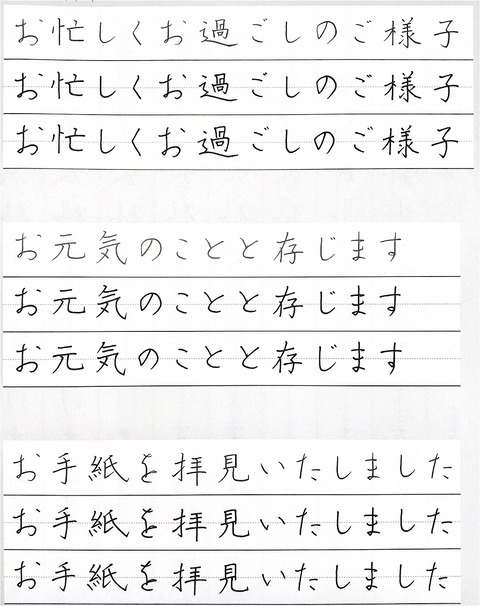 お忙しくお過ごしのご様子
お忙しくお過ごしのご様子
お忙しくお過ごしのご様子
お元気のことと存じます
お元気のことと存じます
お元気のことと存じます
お手紙を拝見いたしました
お手紙を拝見いたしました
お手紙を拝見いたしました